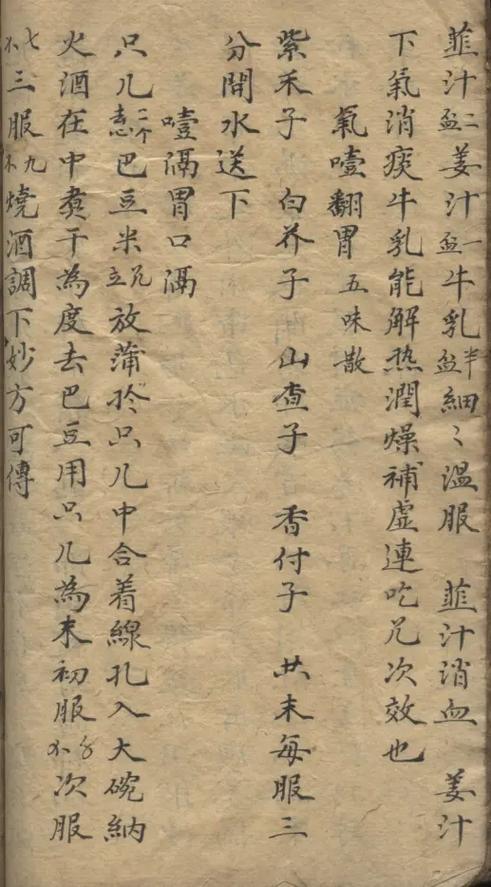 韭汁二盃姜汁一盃牛乳半盃細〻溫服 韭汁消血 姜汁
下氣消痰牛乳能解热潤燥補虛連吃兄次效也
氣噎翻胃 五味散
紫禾子 白芥子 山查子 香付子 共末每服三
分開水送下
噎滆胃口滆
只儿二个去心巴豆米兄立放蒲於只儿中合着線扎入大碗納
火酒在中煑干為度去巴豆用只儿為末初服分不次服
七不三服九不燒酒調下妙方可傳